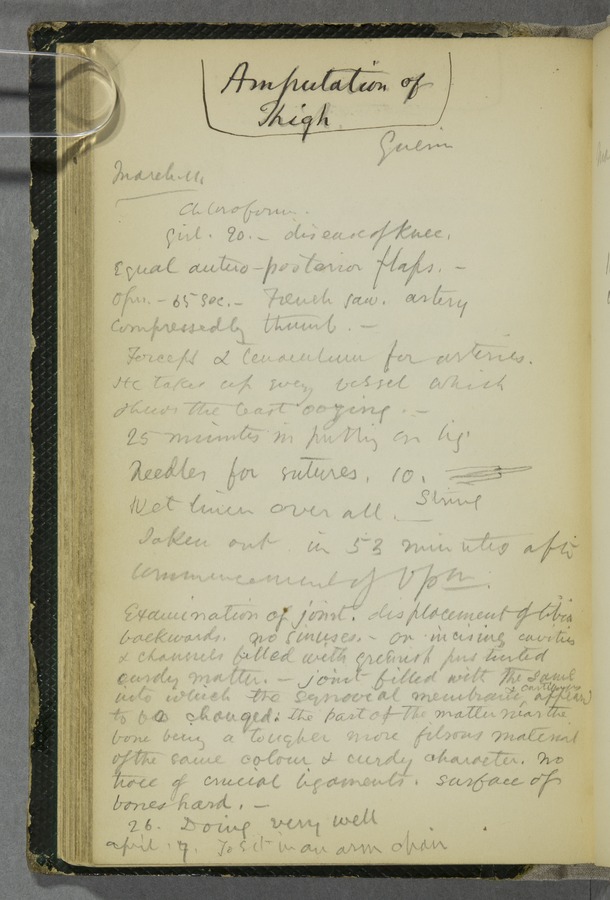 Amputation of
Thigh
Guerin
March 11.
Chloroform.
Girl. 20. – disease of Knee.
Equal antero-posterior flaps. –
Opn. – 65 Sec. – French saw. artery
compressed by thumb. –
Forceps & tenaculum for arteries.
He takes up every vessel which
shews the least oozing. –
25 minutes in putting on lig.
Needles for sutures. 10.
Wet linen over all.
Taken out in 53 minutes after
commencement of Opn.
Examination of joint. displacement of tibia
backwards. no sinuses. – on incising cavities
& channels filled with greenish pus tinted
curdy matter. – joint filled with the same
into which the synovial membrane & cartilages appear
to be changed: the part of the matter near the
bone being a tougher more fibrous material
of the same colour & curdy character. no
trace of crucial ligaments. surface of
bones hard. –
26. Doing very well
april. 7. To sit in an arm chair